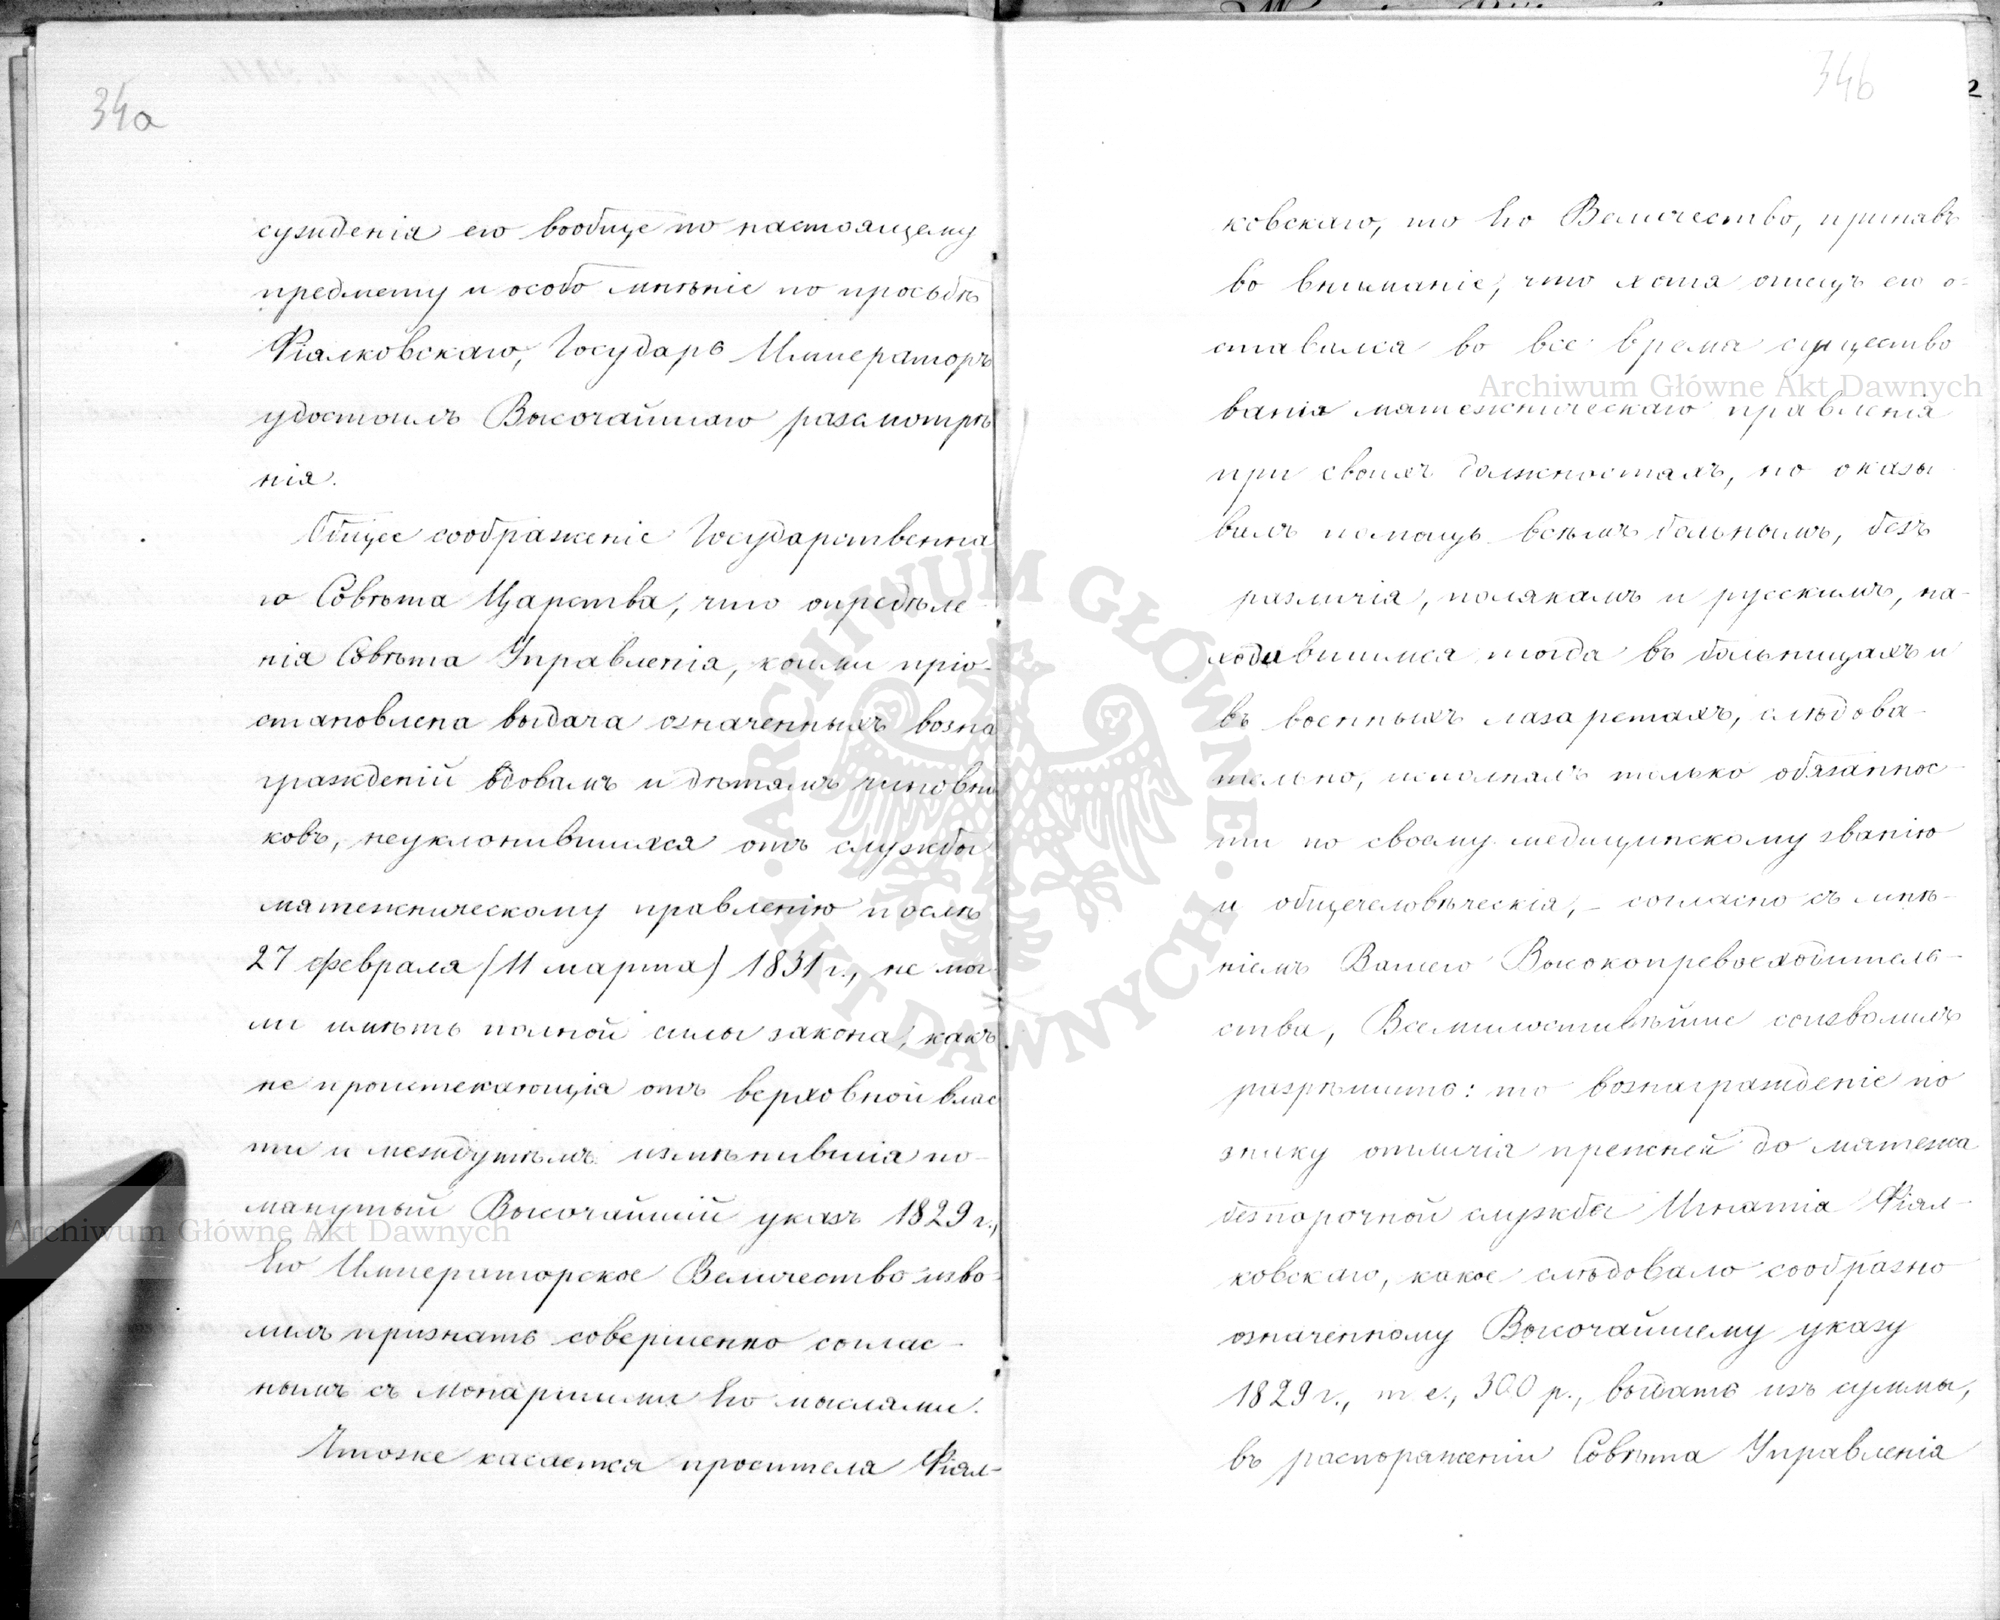 34а
сужденія его вообще по настоящему
предмету и особо мнѣніе по просьбѣ
Фіалковскаго, Государь Императоръ
удостоилъ Высочайшаго разсмотрѣ
нія.
Общее соображеніе Государственна
го Совѣта Царства, что опредѣле
нія Совѣта Управленія, коими пріо-
становлена выдача означенныхъ возна
гражденій вдовамъ и дѣтямъ чиновни
ковъ, неуклонившихся отъ службы
мятежническому правленію послѣ
27 февраля (11 марта) 1831 г., не мог-
ли имѣть полной силы закона, какъ
не проистекающія отъ верховной влас
ти и междутѣмъ измѣнившія по-
мянутый Высочайшій указъ 1829 г.,
Его Императорское Величество изво-
лилъ признать совершенно соглас-
нымъ съ Монаршими Его мыслями.
Чтоже касается просителя Фіял-
34b
2
ковскаго, то Его Величество, принявъ
во вниманіе, что хотя отецъ его о-
ставался во все время существо
ванія мятежническаго правленія
при своихъ должностяхъ, но оказы
валъ помощь всѣмъ больнымъ, безъ
различія, полякамъ и русскимъ, на-
ходившимся тогда въ больницахъ и
въ военныхъ лазаретахъ, слѣдова-
тельно, исполнялъ только обязаннос-
ти по своему медицинскому званію
и общечеловѣческія, – согласно съ мнѣ-
ніемъ Вашего Высокопревосходитель-
ства, Всемилостивѣйше соизволилъ
разрѣшить: то вознагражденіе по
знаку отличія прежней до мятежа
безпорочной службы Игнатія Фіял-
ковскаго, какое слѣдовало сообразно
означенному Высочайшему указу
1829 г., т. е., 300 р., выдать изъ суммы,
въ распоряженіи Совѣта Управленія
Archiwum Główne Akt Dawnych
Archiwum Główne Akt Dawnych
ARCHIWUM GŁÓWNE · AKT DAWNYCH ·